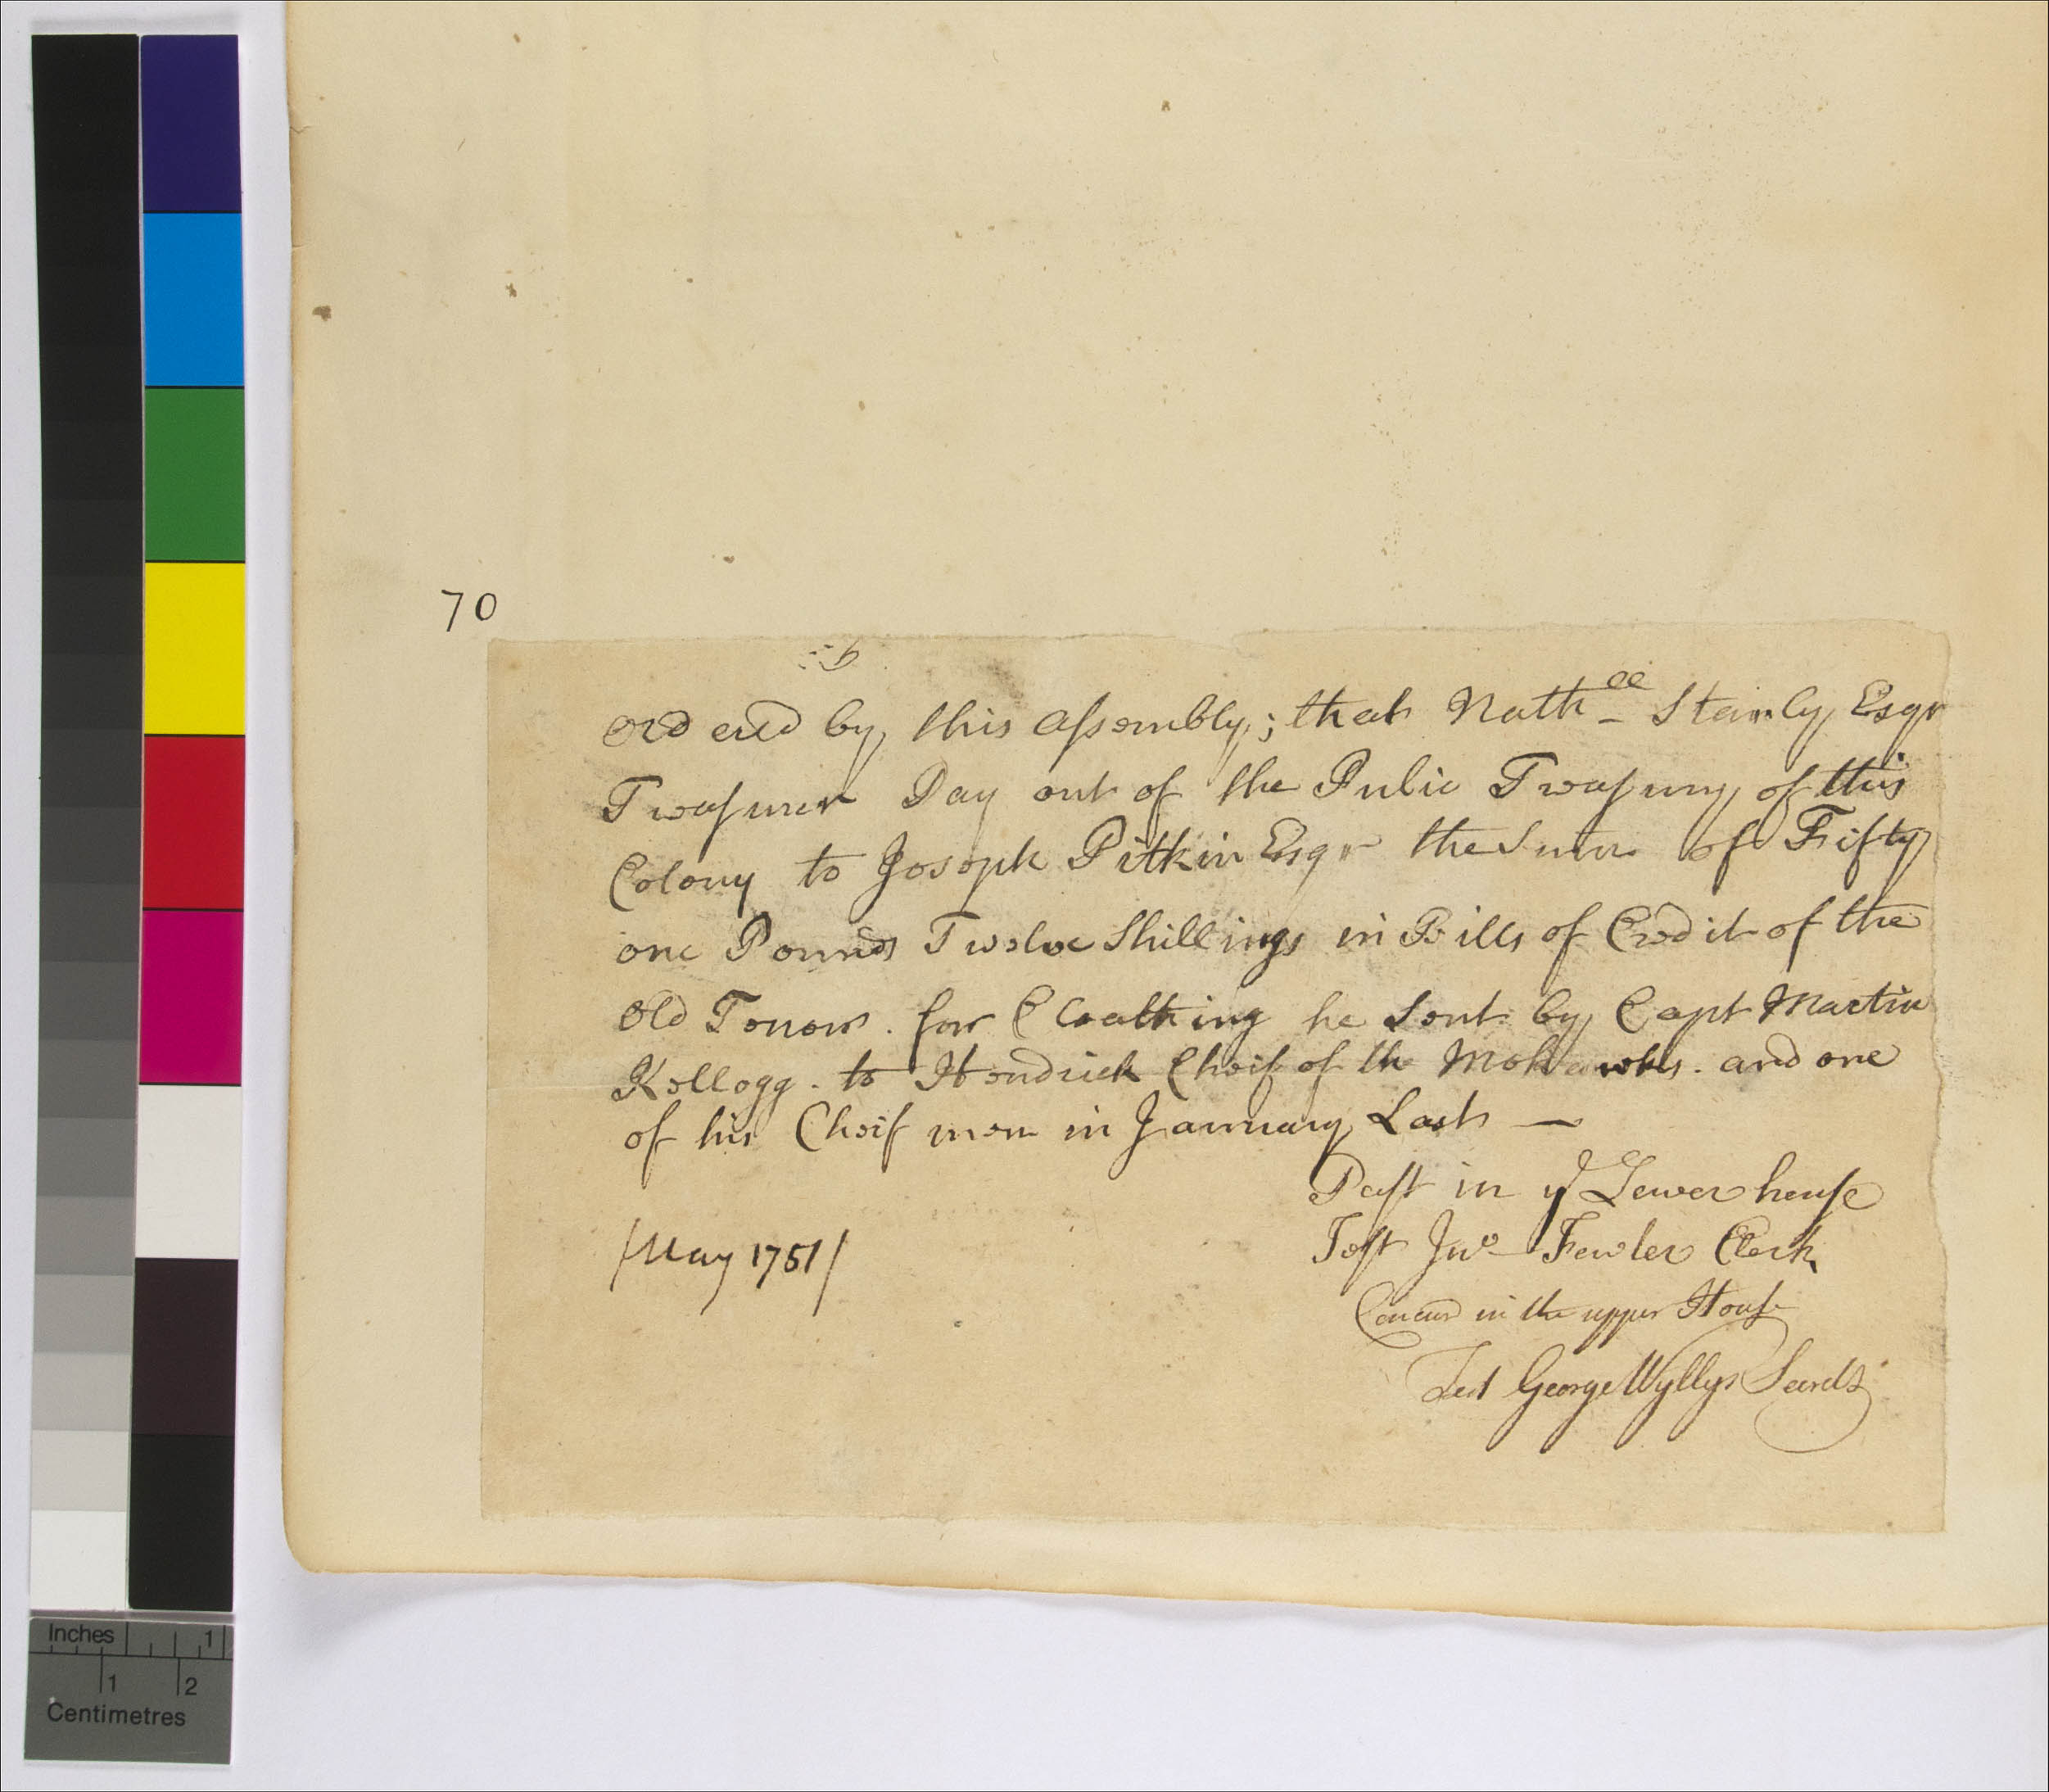 70
Ordered by this assembly; that Nath^ll Stanly Esqr
Treasurer Pay out of the Pulic Treasury of this
Colony to Joseph Pitkin Esqr the Sum of Fifty
one Pounds Twelve Shillings in Bills of Credit of the
Old Tenor. for Cloathing he Sent by Capt Martin
Kellogg. to Hendrick Cheif of the Mohawks. and one
of his Cheif men in January Last —
Past in ye Lower house
Test Jno Fowler Clerk
/May 1751/
Concurd in the upper House
Test George Wyllys Secrety
Inches 1
1 2
Centimetres